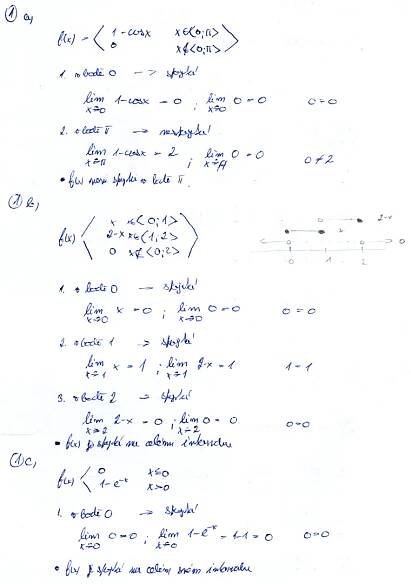 ① a,
f(x) = < 1-cosx x∈<0;π>
0 x∉<0;π> >
1. v bodě 0 -> spojitá
lim x→0 1-cosx = 0 ; lim x→0 0 = 0 0=0
2. v bodě π -> nespojitá
lim x→π 1-cosx = 2 ; lim x→π 0 = 0 0≠2
• f(x) není spojitá v bodě π.
① b,
f(x) < x x∈<0;1>
2-x x∈(1;2>
0 x∉<0;2> >
0 1 2
1. v bodě 0 -> spojitá
lim x→0 x = 0 ; lim x→0 0 = 0 0=0
2. v bodě 1 -> spojitá
lim x→1 x = 1 ; lim x→1 2-x = 1 1=1
3. v bodě 2 -> spojitá
lim x→2 2-x = 0 ; lim x→2 0 = 0 0=0
• f(x) je spojitá na celém intervalu
① c,
f(x) < 0 x≤0
1-e^-x x>0
1. v bodě 0 -> spojitá
lim x→0 0 = 0 ; lim x→0 1-e^-x = 1-1 = 0 0=0
• f(x) je spojitá na celém svém intervalu